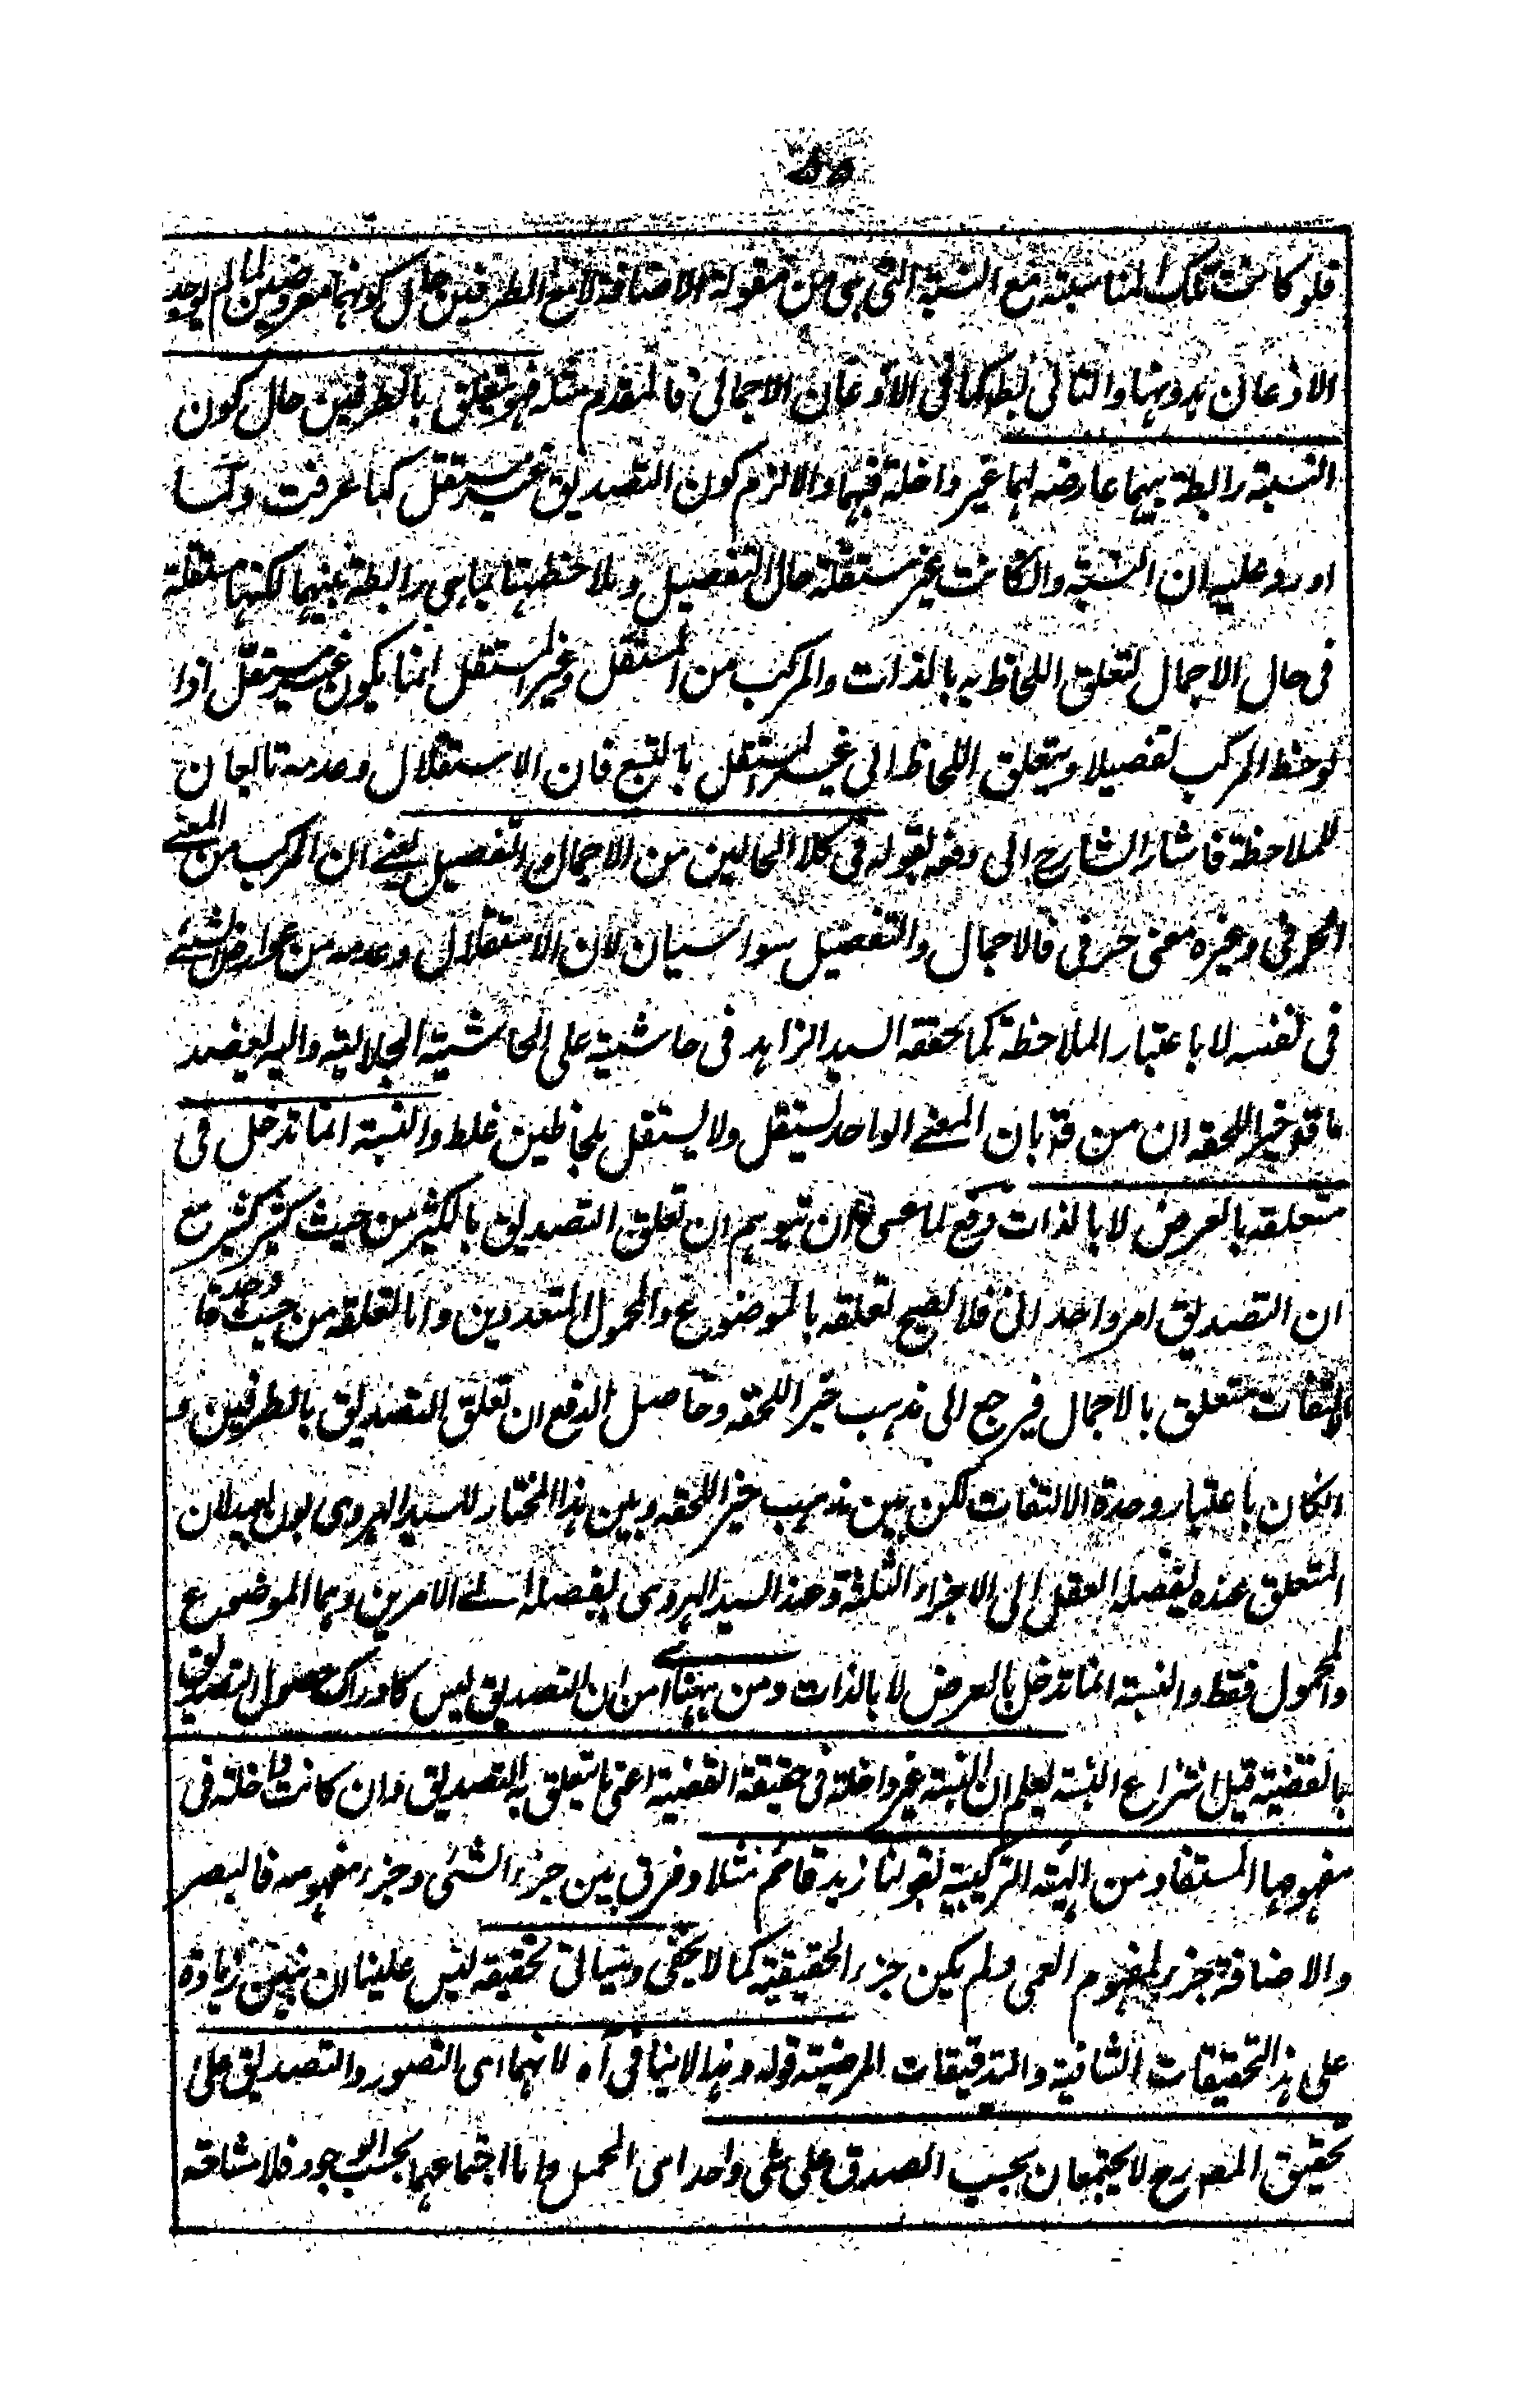 ٥٥
فلو كانت تلك المناسبة مع النسبة التي هي من مقولة الاضافة لا مع الطرفين حال كونهما معروضين لها لم يوجد
الاذعان بدونها والتالي بط كما في الاذعان الاجمالي فالمقدم مثله فهو يتعلق بالطرفين حال كون
النسبة رابطة بينهما عارضه لهما غير داخلة فيهما والا لزم كون التصديق غير مستقل كما عرفت ولما
اورد عليه ان النسبة وان كانت غير مستقلة حال التفصيل وملاحظتها بما هي رابطة بينهما لكنها مستقلة
في حال الاجمال لتعلق اللحاظ به بالذات والمركب من المستقل وغير المستقل انما يكون غير مستقل اذا
لوحظ المركب تفصيلا ويتعلق اللحاظ الى غير المستقل بالتبع فان الاستقلال وعدمه تابعان
للملاحظة فاشار الشارح الى دفعه بقوله في كلا الحالين من الاجمال والتفصيل يعني ان المركب من المعنى
الحرفي وغيره معنى حرفي فالاجمال والتفصيل سواسيان لان الاستقلال وعدمه من عوارض الشئ
في نفسه لا باعتبار الملاحظة كما حققه السيد الزاهد في حاشية على الحاشية الجلالية واليه يعضد
ما قد خير اللحقه ان من قد بان المعنى الواحد يستقل ولا يستقل بلحاظين غلط والنسبة انما تدخل في
متعلقه بالعرض لا بالذات دفع لما عسى ان يتوهم ان تعلق التصديق بالكثير من حيث كثير كثير مع
ان التصديق امر واحد الى فلا يصح تعلقه بالموضوع والمحمول المتعددين واما تعلقه من حيث وحدة فا
التفات متعلق بالاجمال فيرجع الى مذهب خير اللحقه وحاصل الدفع ان تعلق التصديق بالطرفين و
انكان باعتبار وحدة الالتفات لكن بين مذهب خير اللحقه وبين هذا المختار للسيد الهروي بون بعيد لان
المتعلق عنده يفصله العقل الى الاجزاء الثلثة وعند السيد الهروي يفصله الى الامرين وهما الموضوع
والمحمول فقط والنسبة انما تدخل بالعرض لا بالذات ومن ههنا اى من ان التصديق ليس كادراك حصول التصديق
بالقضية قبل انتزاع النسبة يعلم ان النسبة غير داخلة في حقيقة القضية اعني ما يتعلق به التصديق وان كانت داخلة في
مفهومها المستفاد من الهيئة التركيبية لقولنا زيد قائم مثلا وفرق بين جزء الشئ وجزء مفهومه فالبصر
والاضافة جزء لمفهوم العمى ولم يكن جزء الحقيقية كما لا يخفى وسياتى تحقيقه ليس علينا ان نبين زيادة
على هذا التحقيقات الشافية والتدقيقات المرضية قوله وهذا لا ينافي آه لانهما اى التصور والتصديق على
تحقيق المصرح لا يجتمعان بحسب الصدق على شئ واحد اى الحمل واما اجتماعهما بحسب الوجود فلا مشاحة